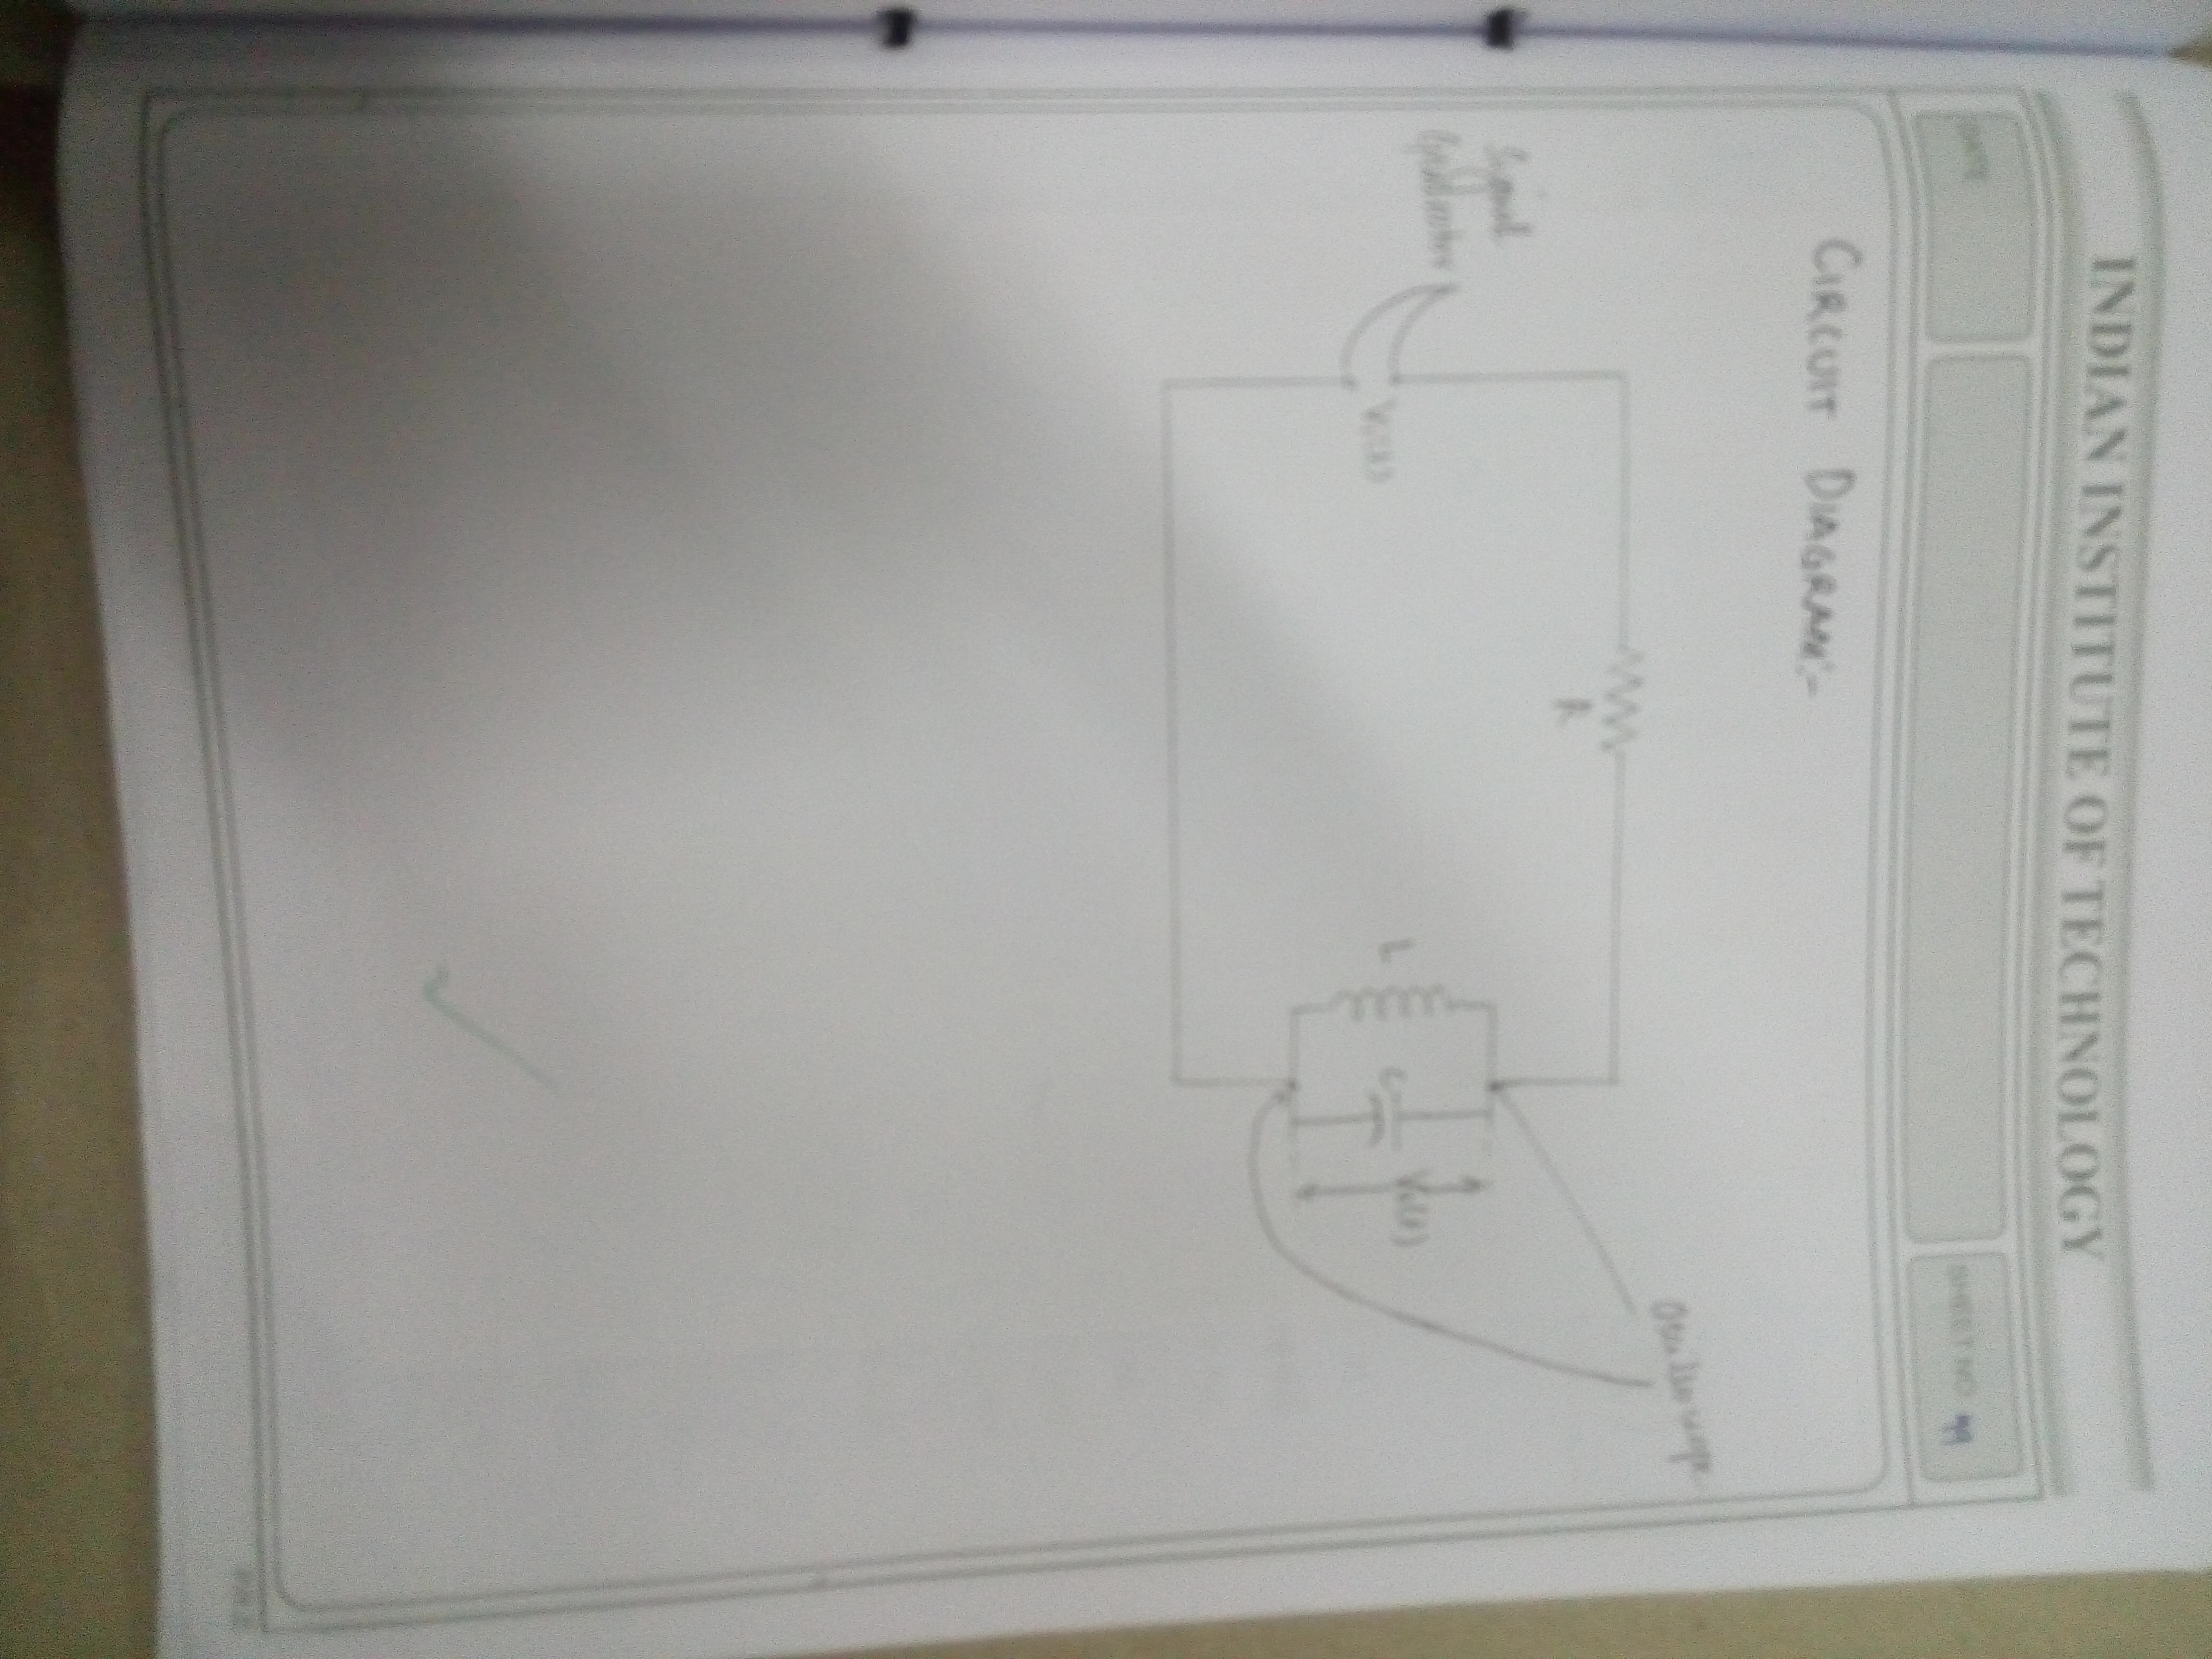 INDIAN INSTITUTE OF TECHNOLOGY
DATE
SHEET NO.
CIRCUIT DIAGRAM:-
Oscilloscope
R
Signal
Generator
Vi(t)
L
C
Vo(t)